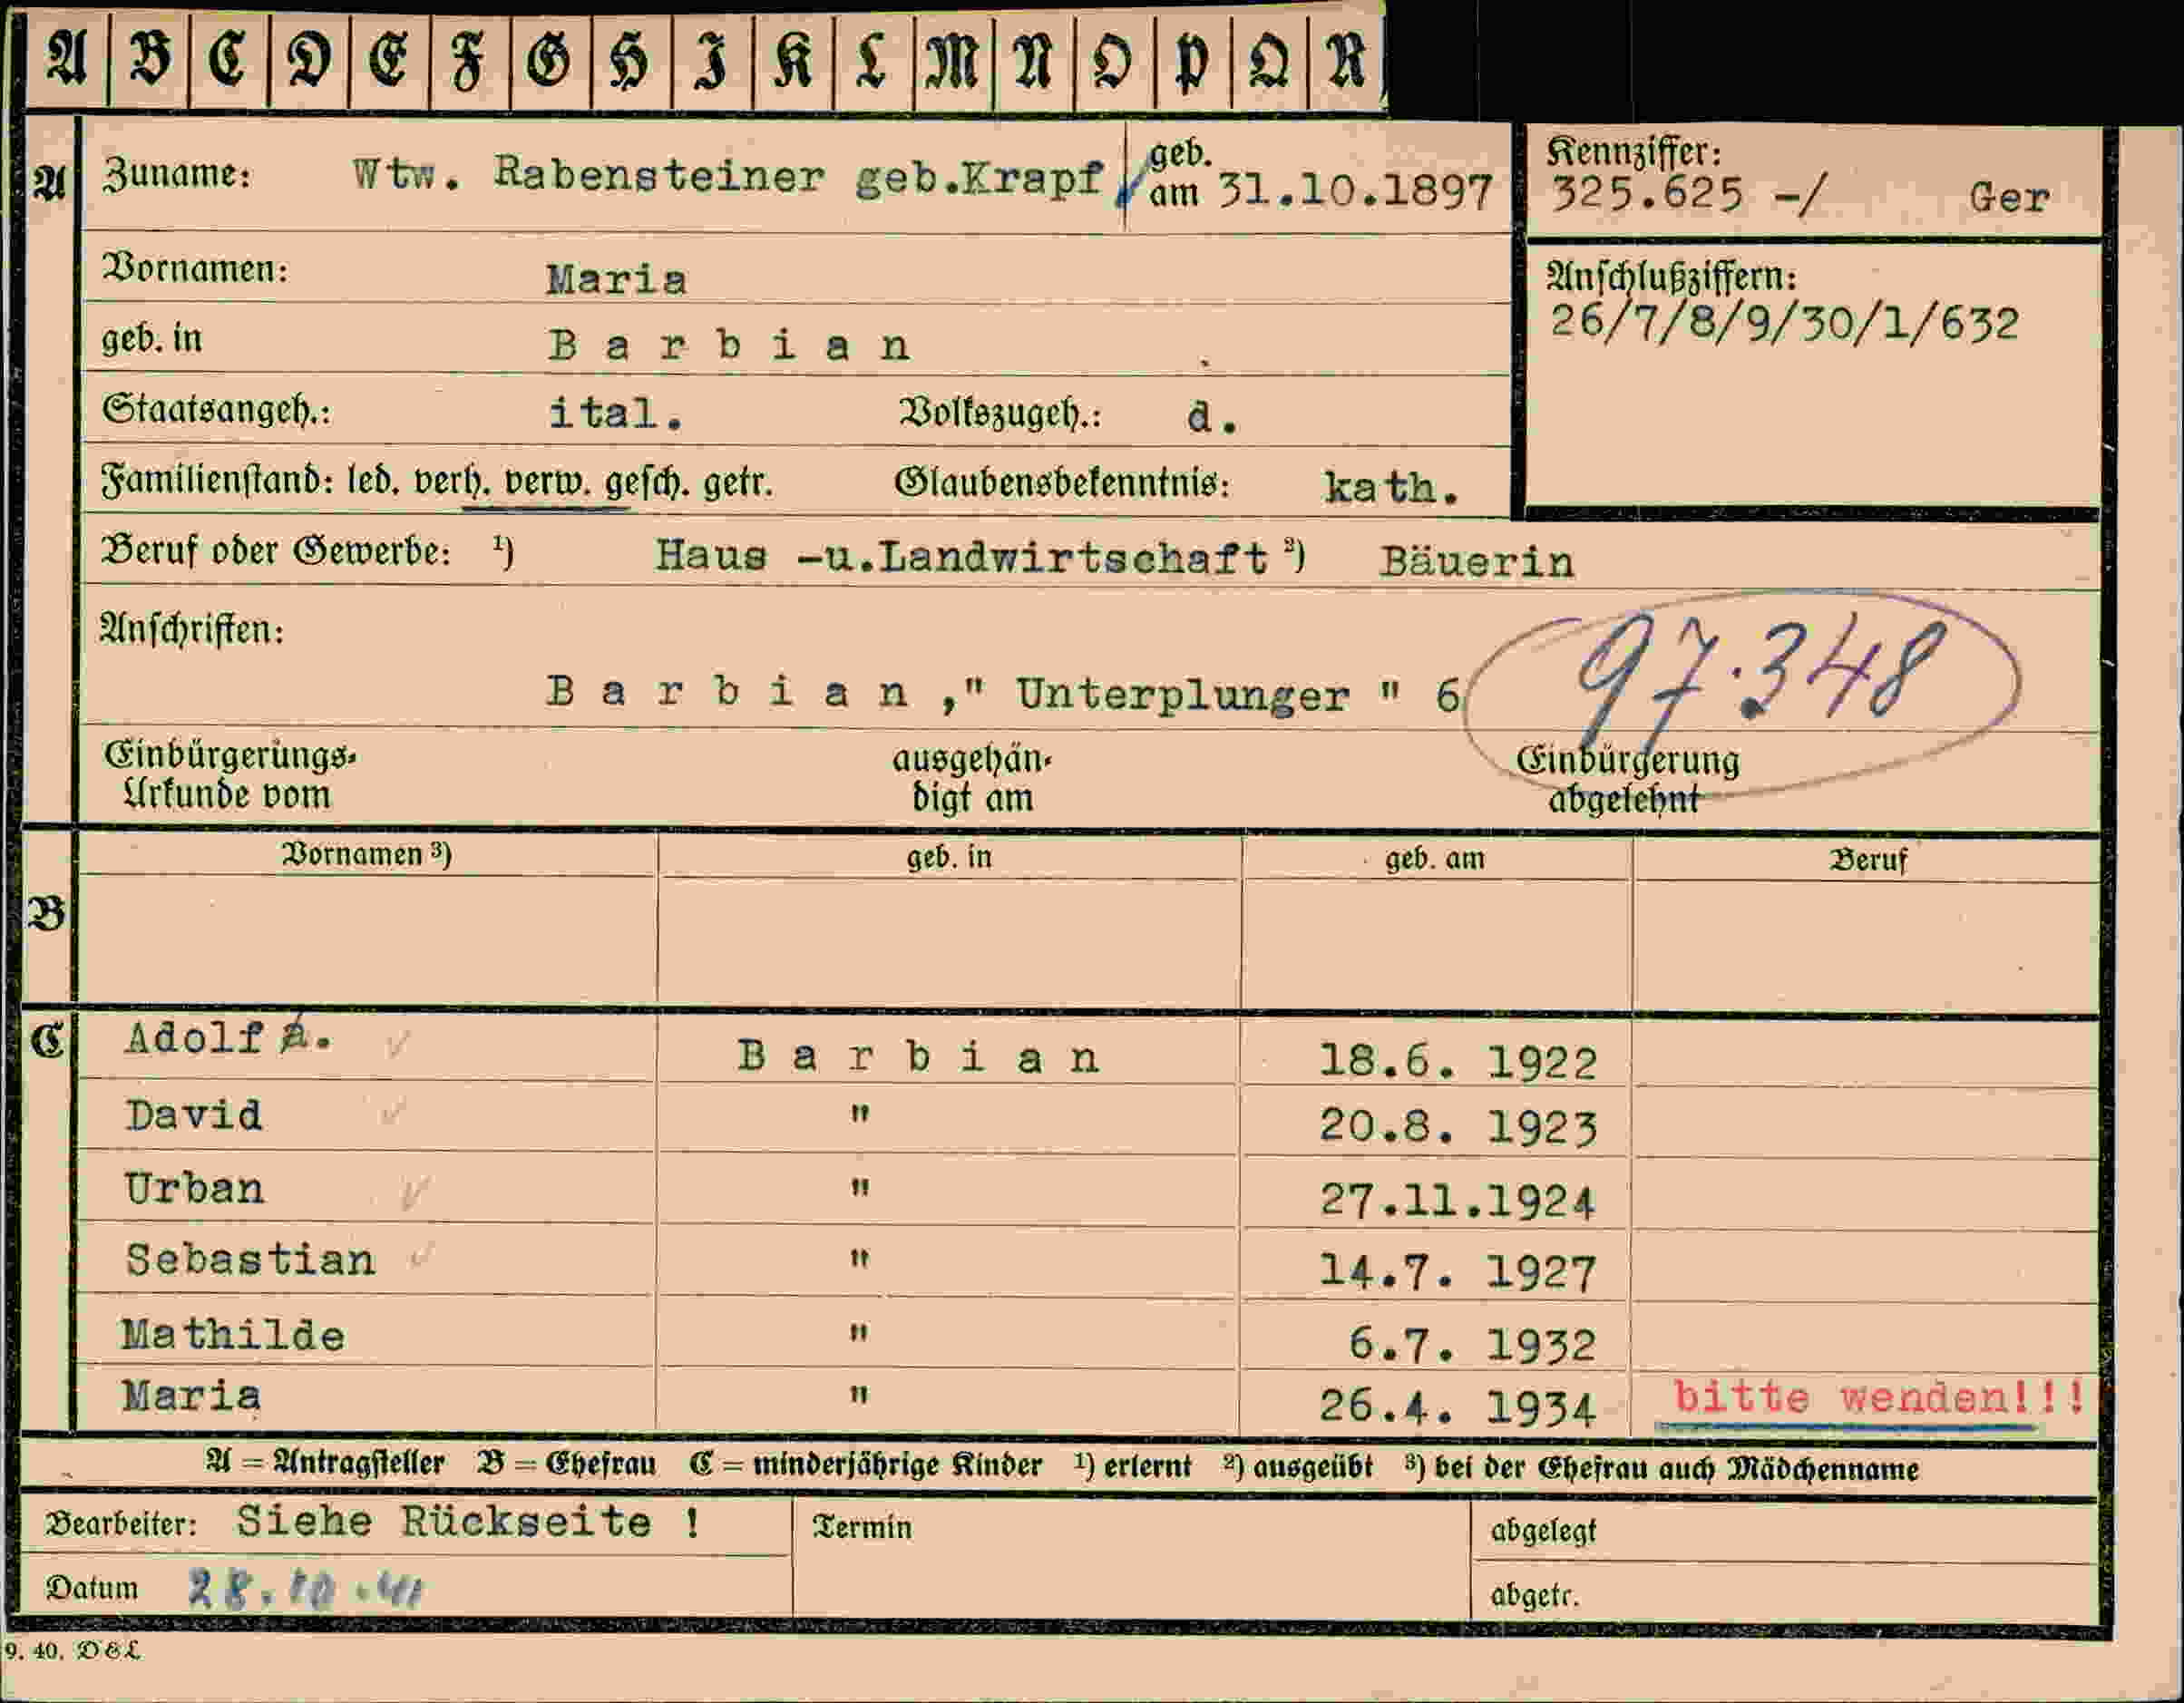 A B C D E F G H I K L M N O P Q R
A Zuname: Wtw. Rabensteiner geb.Krapf geb. am 31.10.1897
Kennziffer: 325.625 -/ Ger
Vornamen: Maria
Anschlußziffern: 26/7/8/9/30/1/632
geb. in B a r b i a n
Staatsangeh.: ital. Volkszugeh.: d.
Familienstand: led. verh. verw. gesch. getr. Glaubensbekenntnis: kath.
Beruf oder Gewerbe: ¹) Haus -u.Landwirtschaft ²) Bäuerin
Anschriften:
97.348
B a r b i a n ," Unterplunger " 6
Einbürgerungs- ausgehän- Einbürgerung
Urkunde vom digt am abgelehnt
Vornamen ³) geb. in geb. am Beruf
B
C Adolf B a r b i a n 18.6. 1922
David " 20.8. 1923
Urban " 27.11.1924
Sebastian " 14.7. 1927
Mathilde " 6.7. 1932
Maria " 26.4. 1934 bitte wenden!!!
A = Antragsteller B = Ehefrau C = minderjährige Kinder ¹) erlernt ²) ausgeübt ³) bei der Ehefrau auch Mädchenname
Bearbeiter: Siehe Rückseite ! Termin abgelegt
Datum 28.10.41 abgetr.
9. 40. D&L